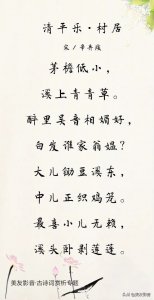 清平乐·村居
宋／辛弃疾
茅檐低小，
溪上青青草。
醉里吴音相媚好，
白发谁家翁媪？
大儿锄豆溪东，
中儿正织鸡笼。
最喜小儿无赖，
溪头卧剥莲蓬。
美友影音·古诗词赏析专题